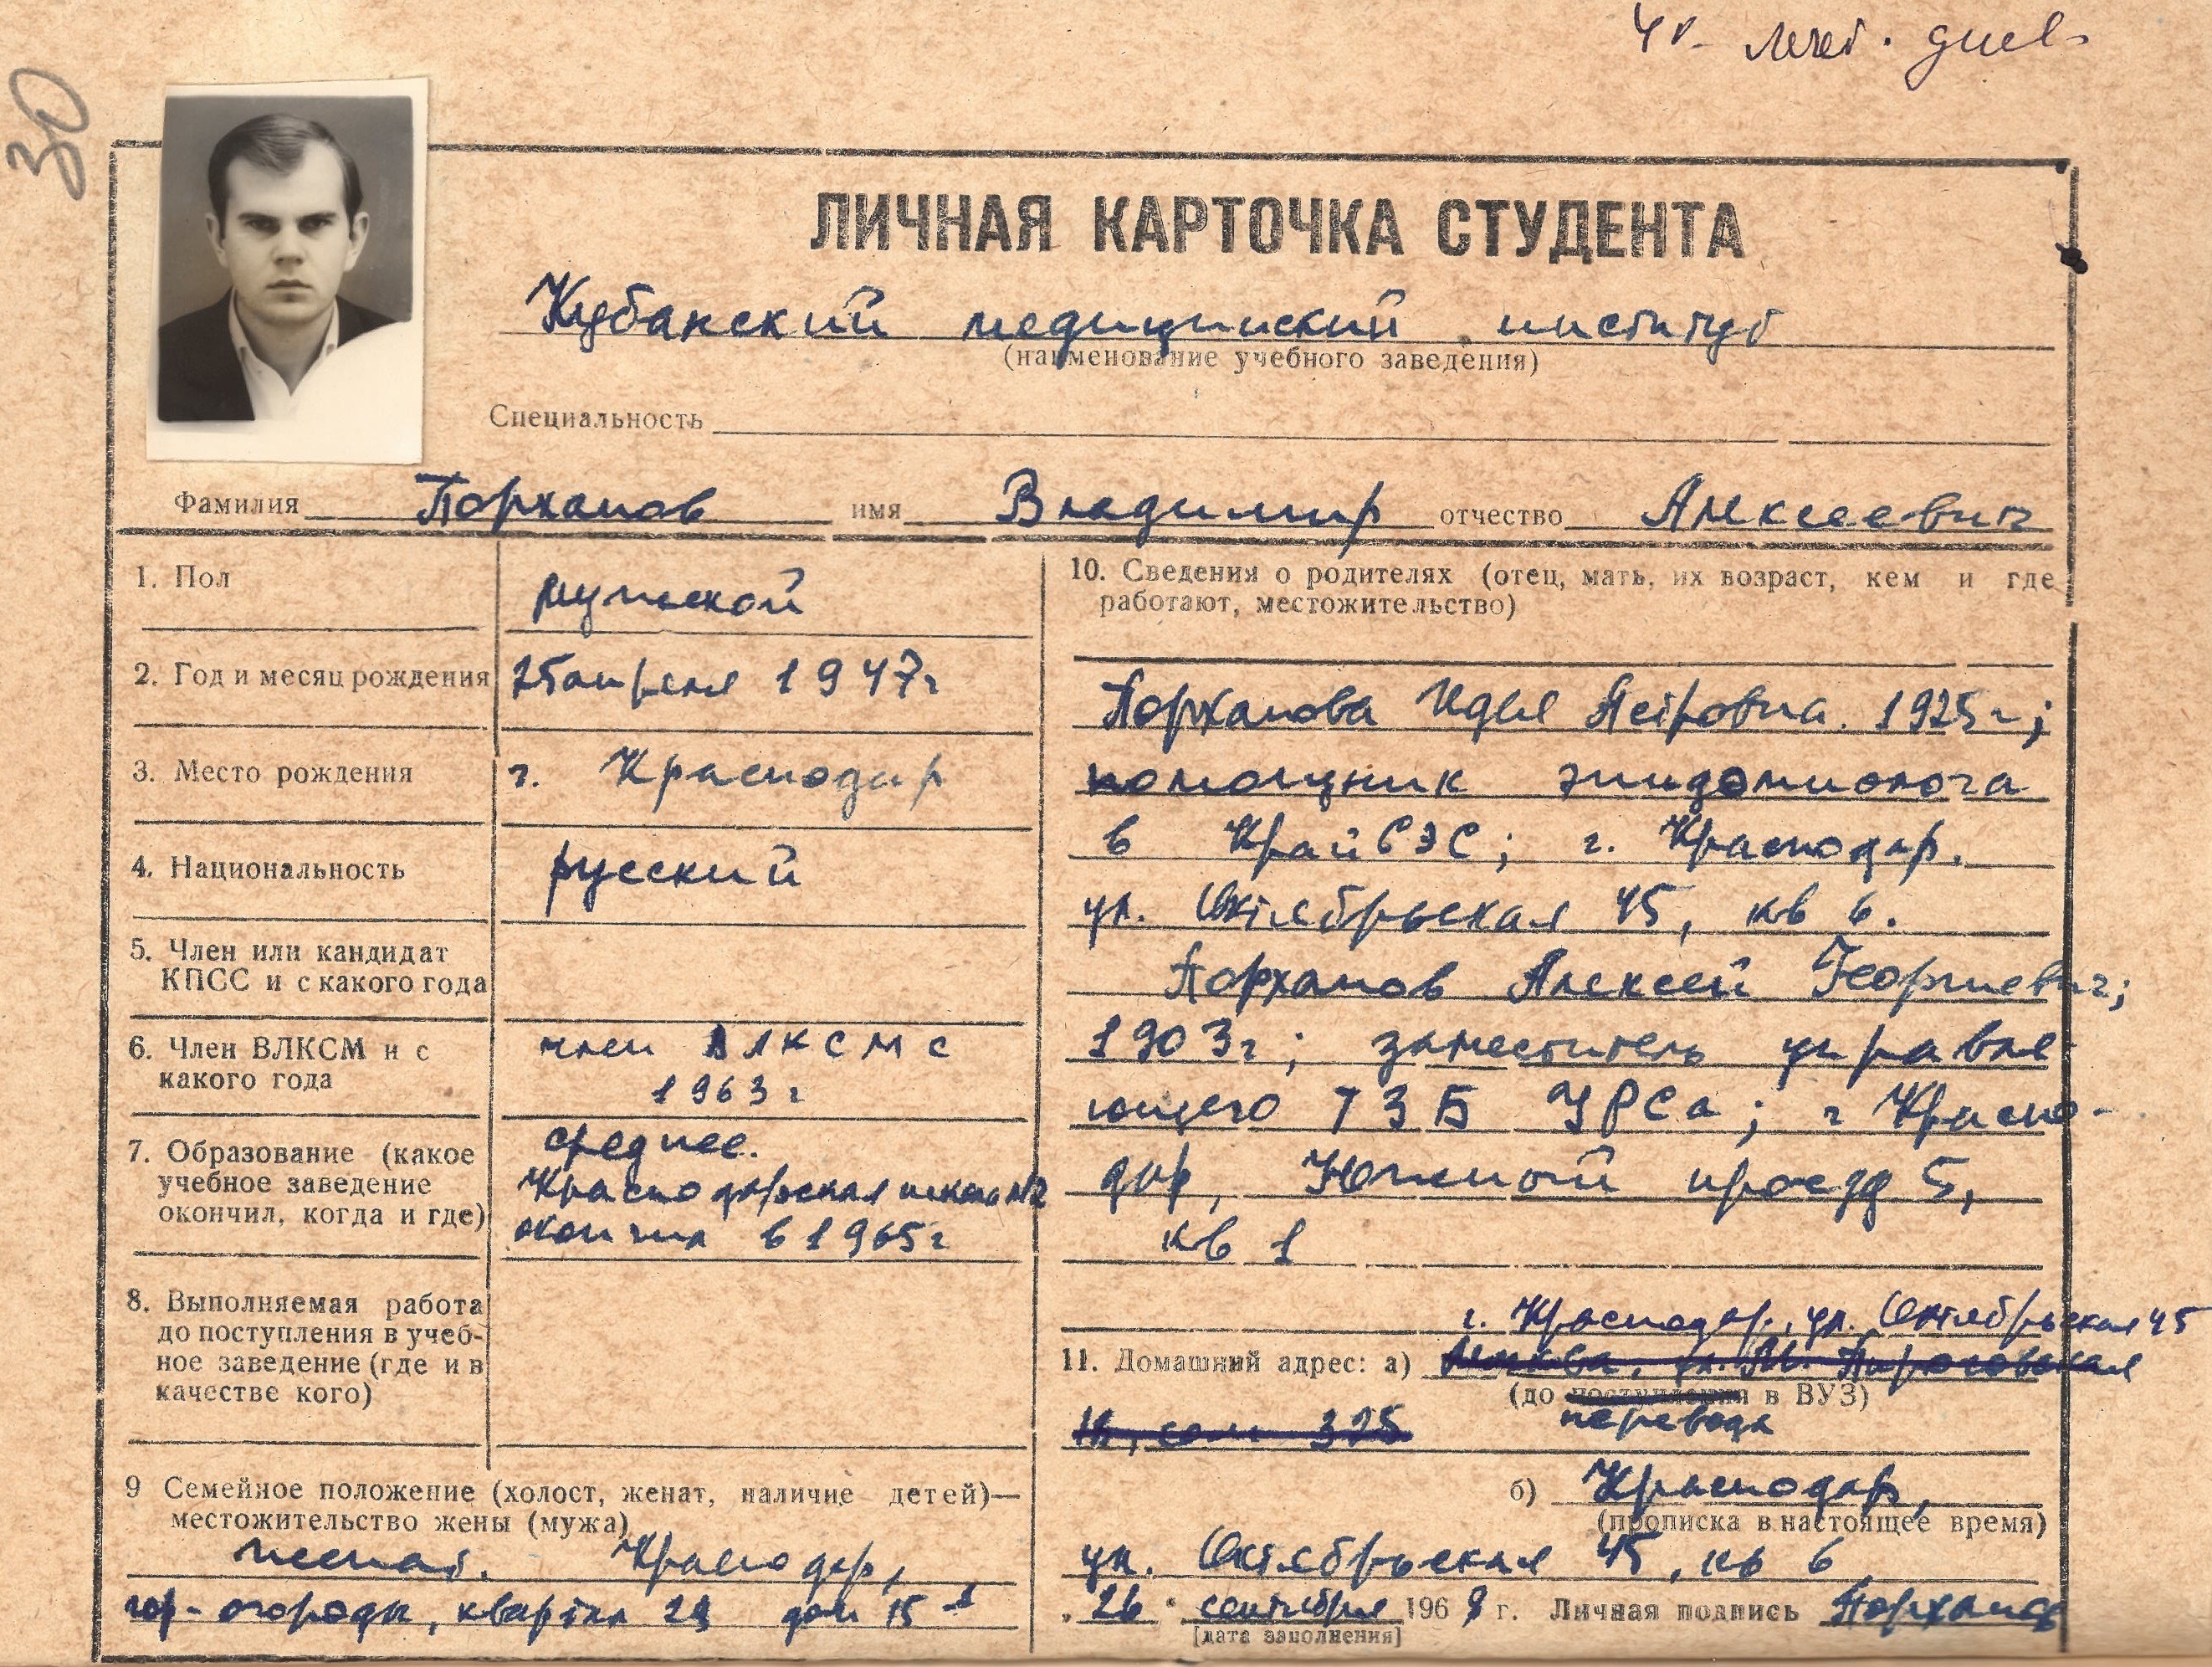 30
ЛИЧНАЯ КАРТОЧКА СТУДЕНТА
Кубанский медицинский институт
(наименование учебного заведения)
Специальность
Фамилия Порханов имя Владимир отчество Алексеевич
1. Пол
мужской
2. Год и месяц рождения
25 апреля 1947г
3. Место рождения
г. Краснодар
4. Национальность
русский
5. Член или кандидат
КПСС и с какого года
6. Член ВЛКСМ и с
какого года
член ВЛКСМ с
1963г
7. Образование (какое
учебное заведение
окончил, когда и где)
среднее.
Краснодарская школа №2
окончил в 1965г
8. Выполняемая работа
до поступления в учеб-
ное заведение (где и в
качестве кого)
9 Семейное положение (холост, женат, наличие детей)—
местожительство жены (мужа)
женат. Краснодар,
огороды, квартал 29 дом 15
10. Сведения о родителях (отец, мать, их возраст, кем и где
работают, местожительство)
Порханова Петровна. 1925г;
помощник эпидемиолога
в КрайСЭС; г. Краснодар.
ул. Октябрьская 45, кв 6.
Порханов Алексей Георгиевич;
1903г; заместитель управля-
ющего ТЗБ УРСа; г Красно-
дар, Южный проезд 5,
кв 1
г. Краснодар, ул. Октябрьская 45
11. Домашний адрес: а) Москва, ул. М. Пироговская
(до поступления в ВУЗ)
перевода
325
б) Краснодар,
(прописка в настоящее время)
ул. Октябрьская 45, кв 6
"26" сентября 1968 г. Личная подпись Порханов
[дата заполнения]